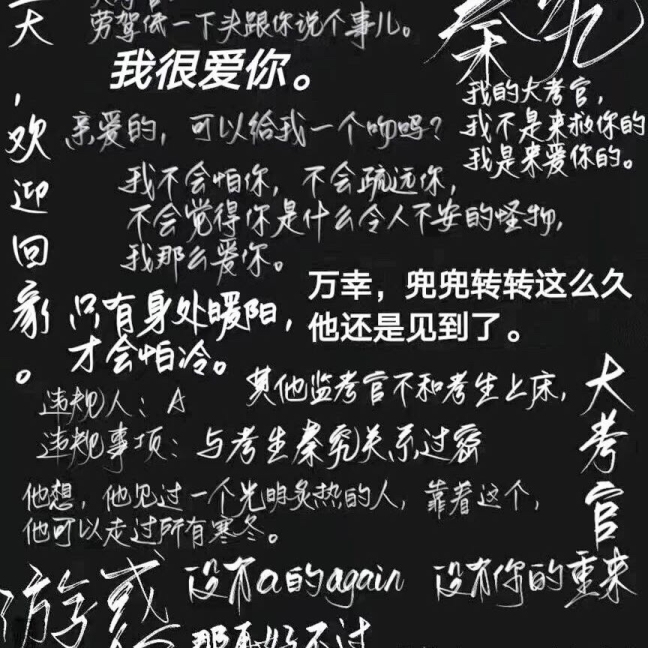 劳驾低一下头跟你说个事儿。
我很爱你。
秦究
我的大考官，
我不是来救你的
我是来爱你的。
天，欢迎回家。
亲爱的，可以给我一个吻吗？
我不会怕你，不会疏远你，
不会觉得你是什么令人不安的怪物，
我那么爱你。
万幸，兜兜转转这么久
他还是见到了。
只有身处暖阳，
才会怕冷。
其他监考官不和考生上床，
大考官
违规人：A
违规事项：与考生秦究关系过密
他想，他见过一个光明炙热的人，靠着这个，
他可以走过所有寒冬。
游惑
没有a的again 没有你的重来
那再好不过